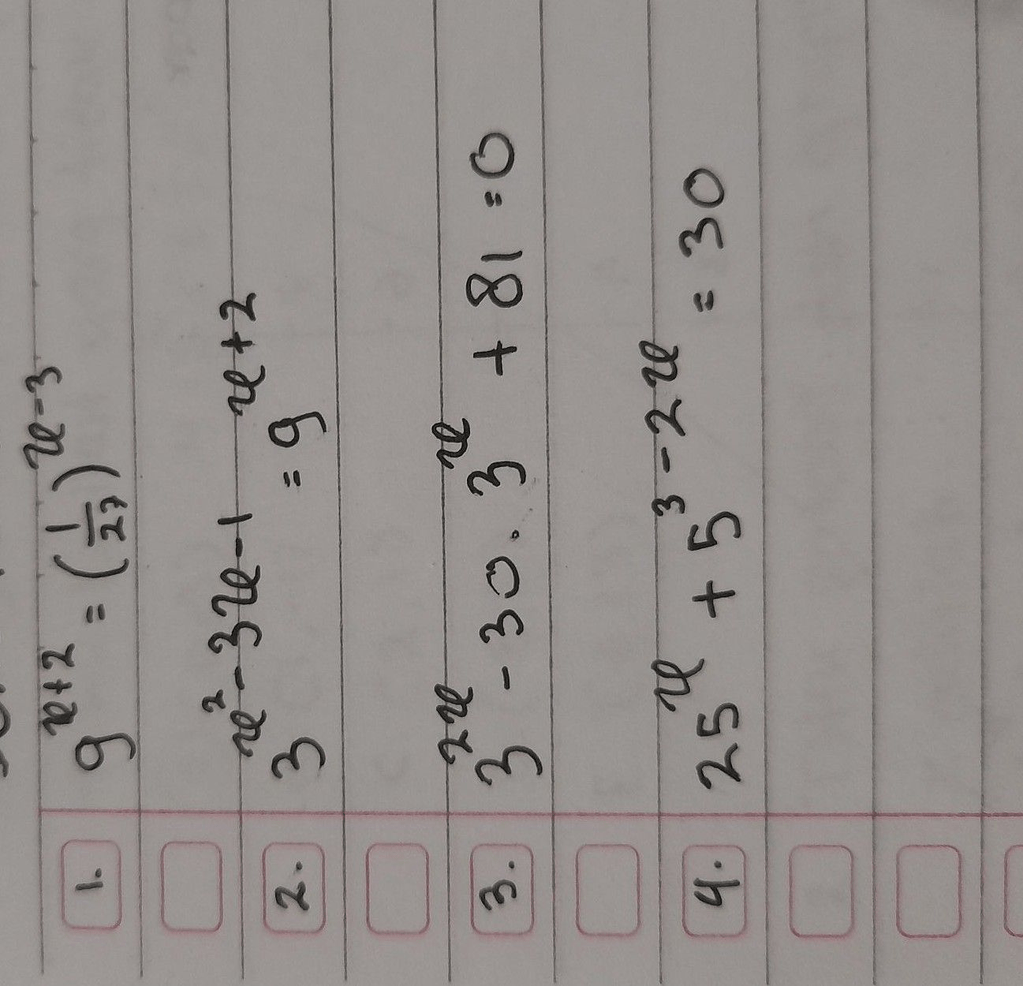 1. 9^(x+2) = (1/27)^(x-3)
2. 3^(x²-3x-1) = 9^(x+2)
3. 3^(2x) - 30 . 3^x + 81 = 0
4. 25^x + 5^(3-2x) = 30